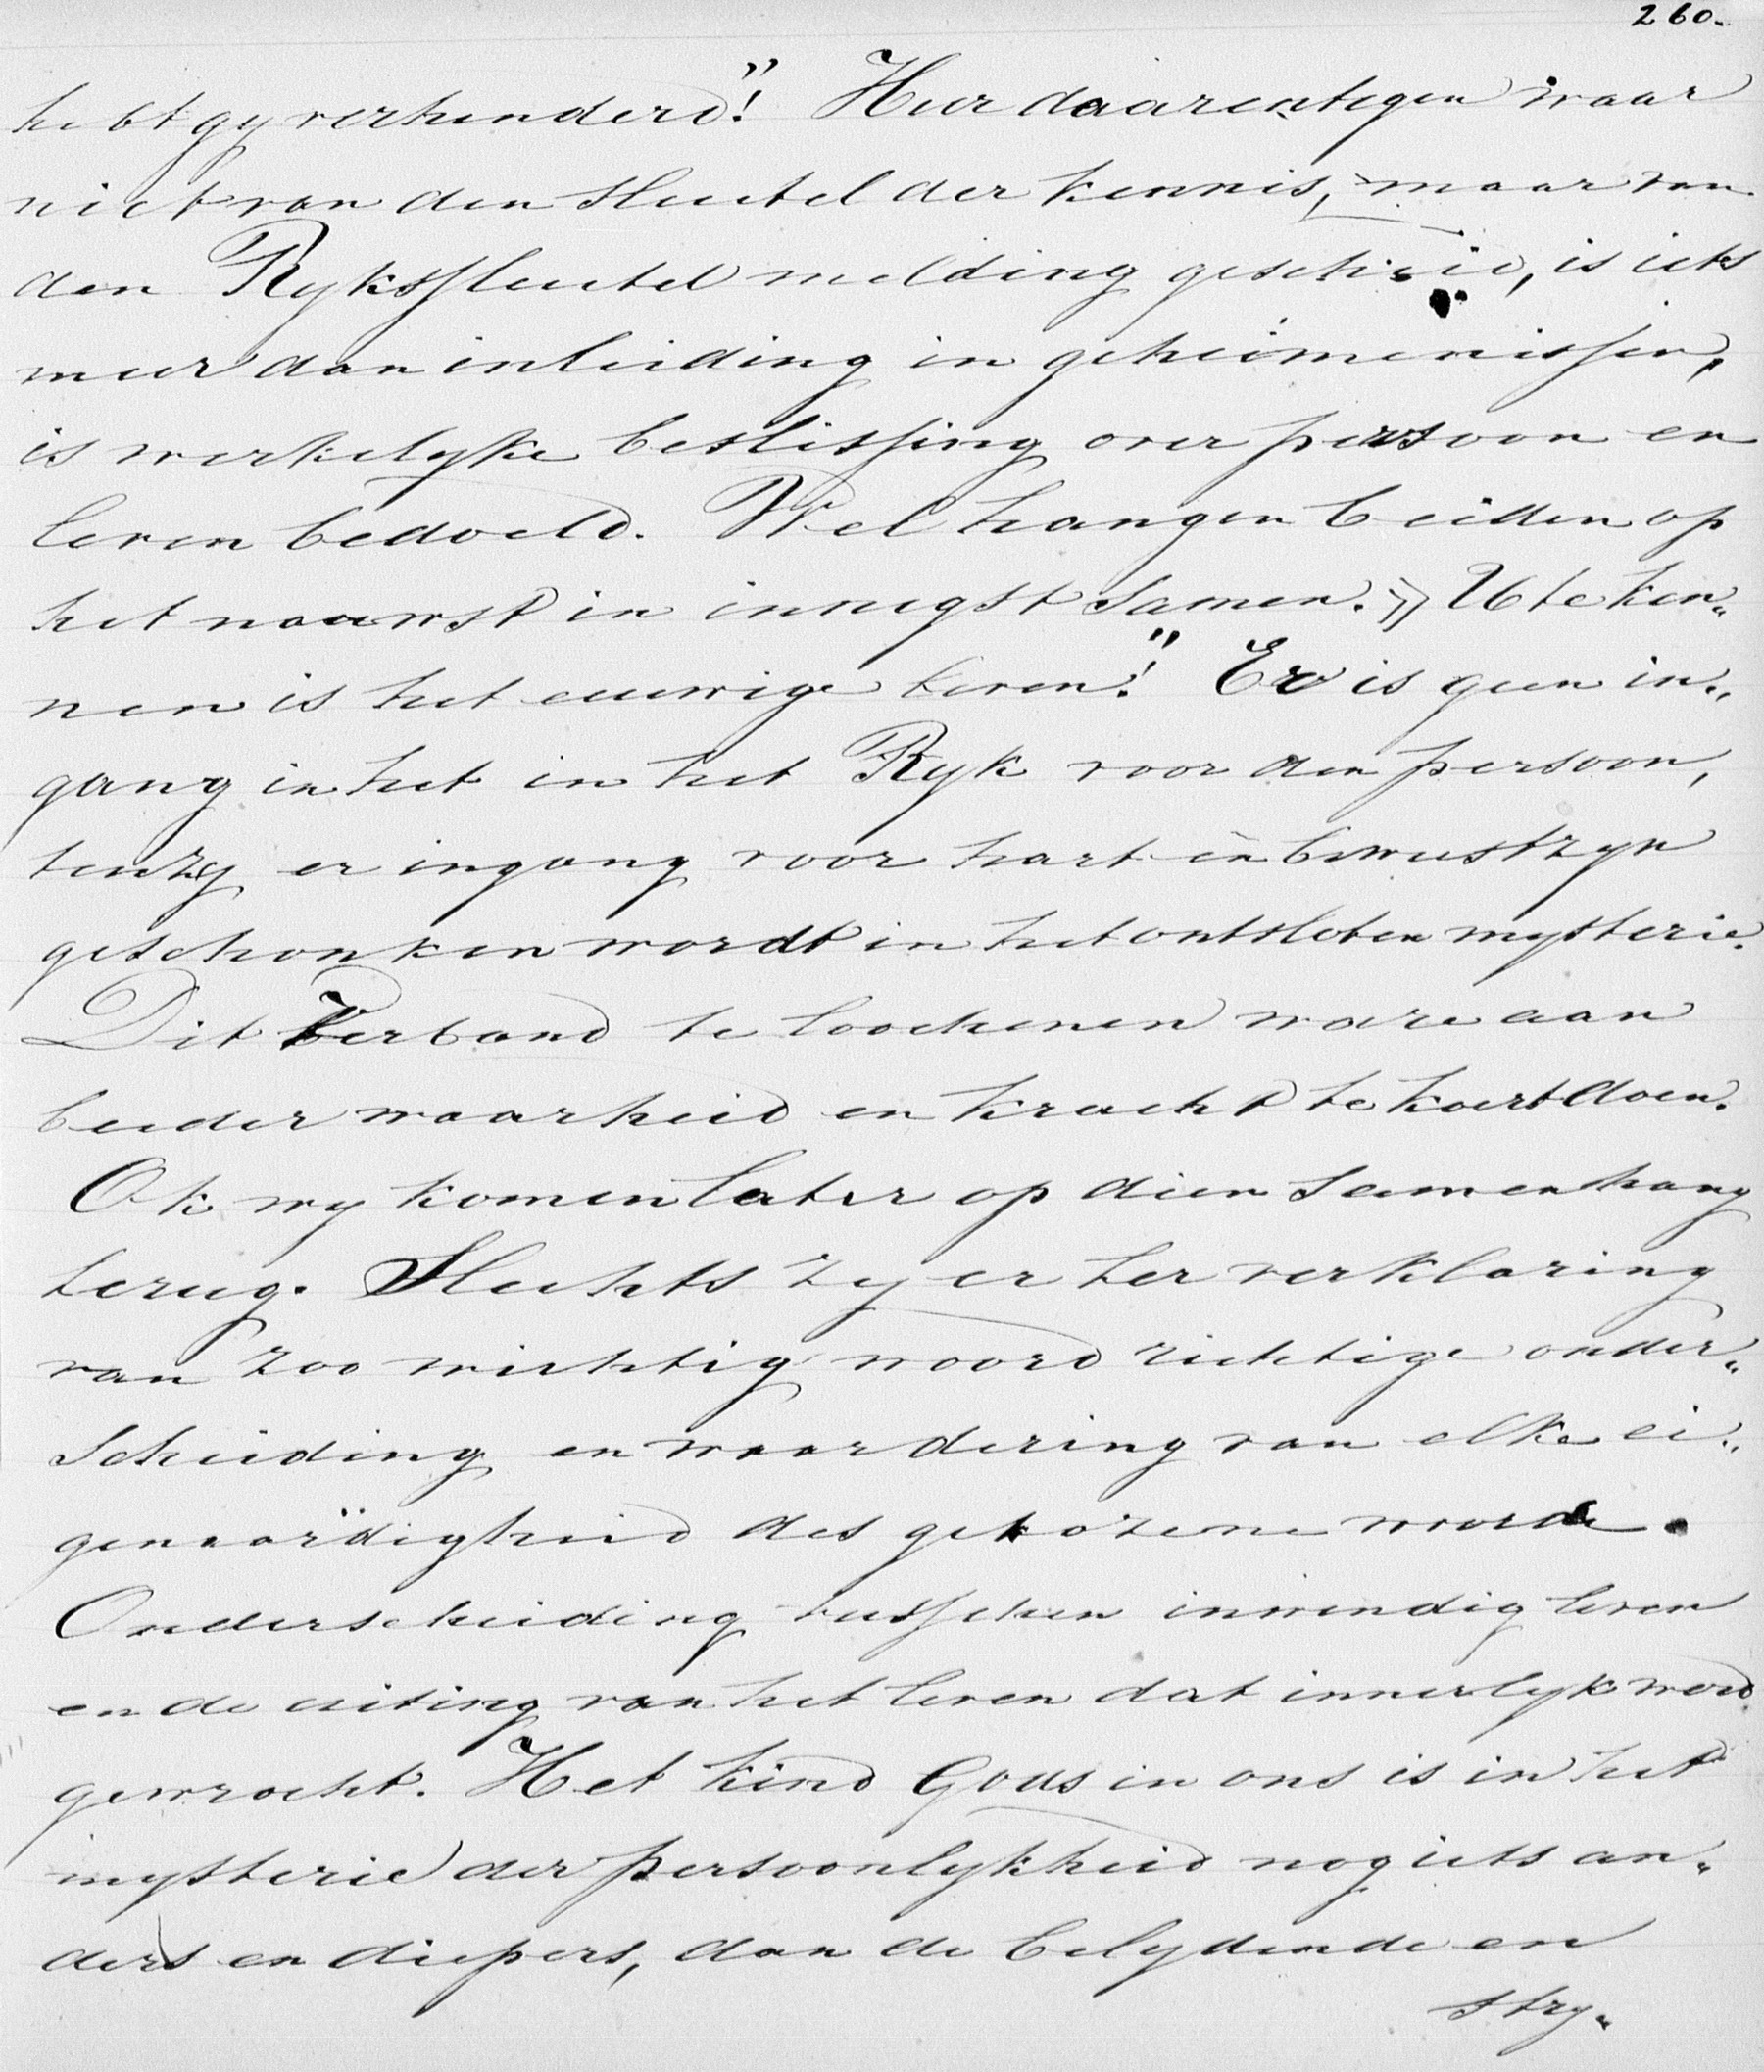 260.
hebt gy verhinderd!" Hier daarentegen waar
niet van den sleutel der kennis, maar van
den Rykssleutel melding geschied, is iets
meer dan inleiding in geheimenissen,
is werkelyke beslissing over persoon en
leven bedoeld. Wel hangen beiden op
het nauwst in innigst samen. » U te ken„
nen is het eeuwige leven!" Er is geen in„
gang in het in het Ryk voor den persoon,
tenzy er ingang voor hart en bewustzyn
geschonken wordt in het ontsloten mysterie.
Dit Verband te loochenen ware aan
beider waarheid en kracht te kort doen.
Ok wy komen later op dien samenhang
terug. Slechts zy er ter verklaring
van zoo wichtig woord richtige onder„
scheiding en waardering van elke ei„
genaardigheid des gekozene woord.
Onderscheiding tusschen inwendig leven
en de uiting van het leven dat innerlyk werd
gewrocht. Het kind Gods in ons is in het
mysterie der persoonlykheid nog iets an„
ders en diepers, dan de belydende en
stry„